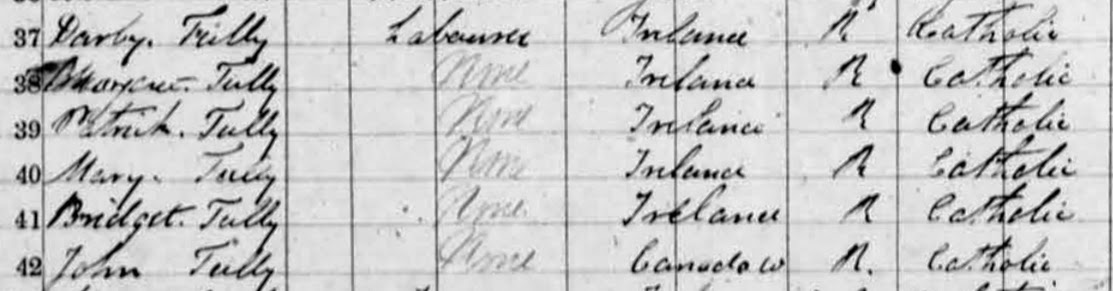 37 Darby. Tully Labourer Ireland R Catholic
38 Margaret Tully None Ireland R Catholic
39 Patrick. Tully None Ireland R Catholic
40 Mary. Tully None Ireland R Catholic
41 Bridget. Tully None Ireland R Catholic
42 John Tully None Canada W R. Catholic